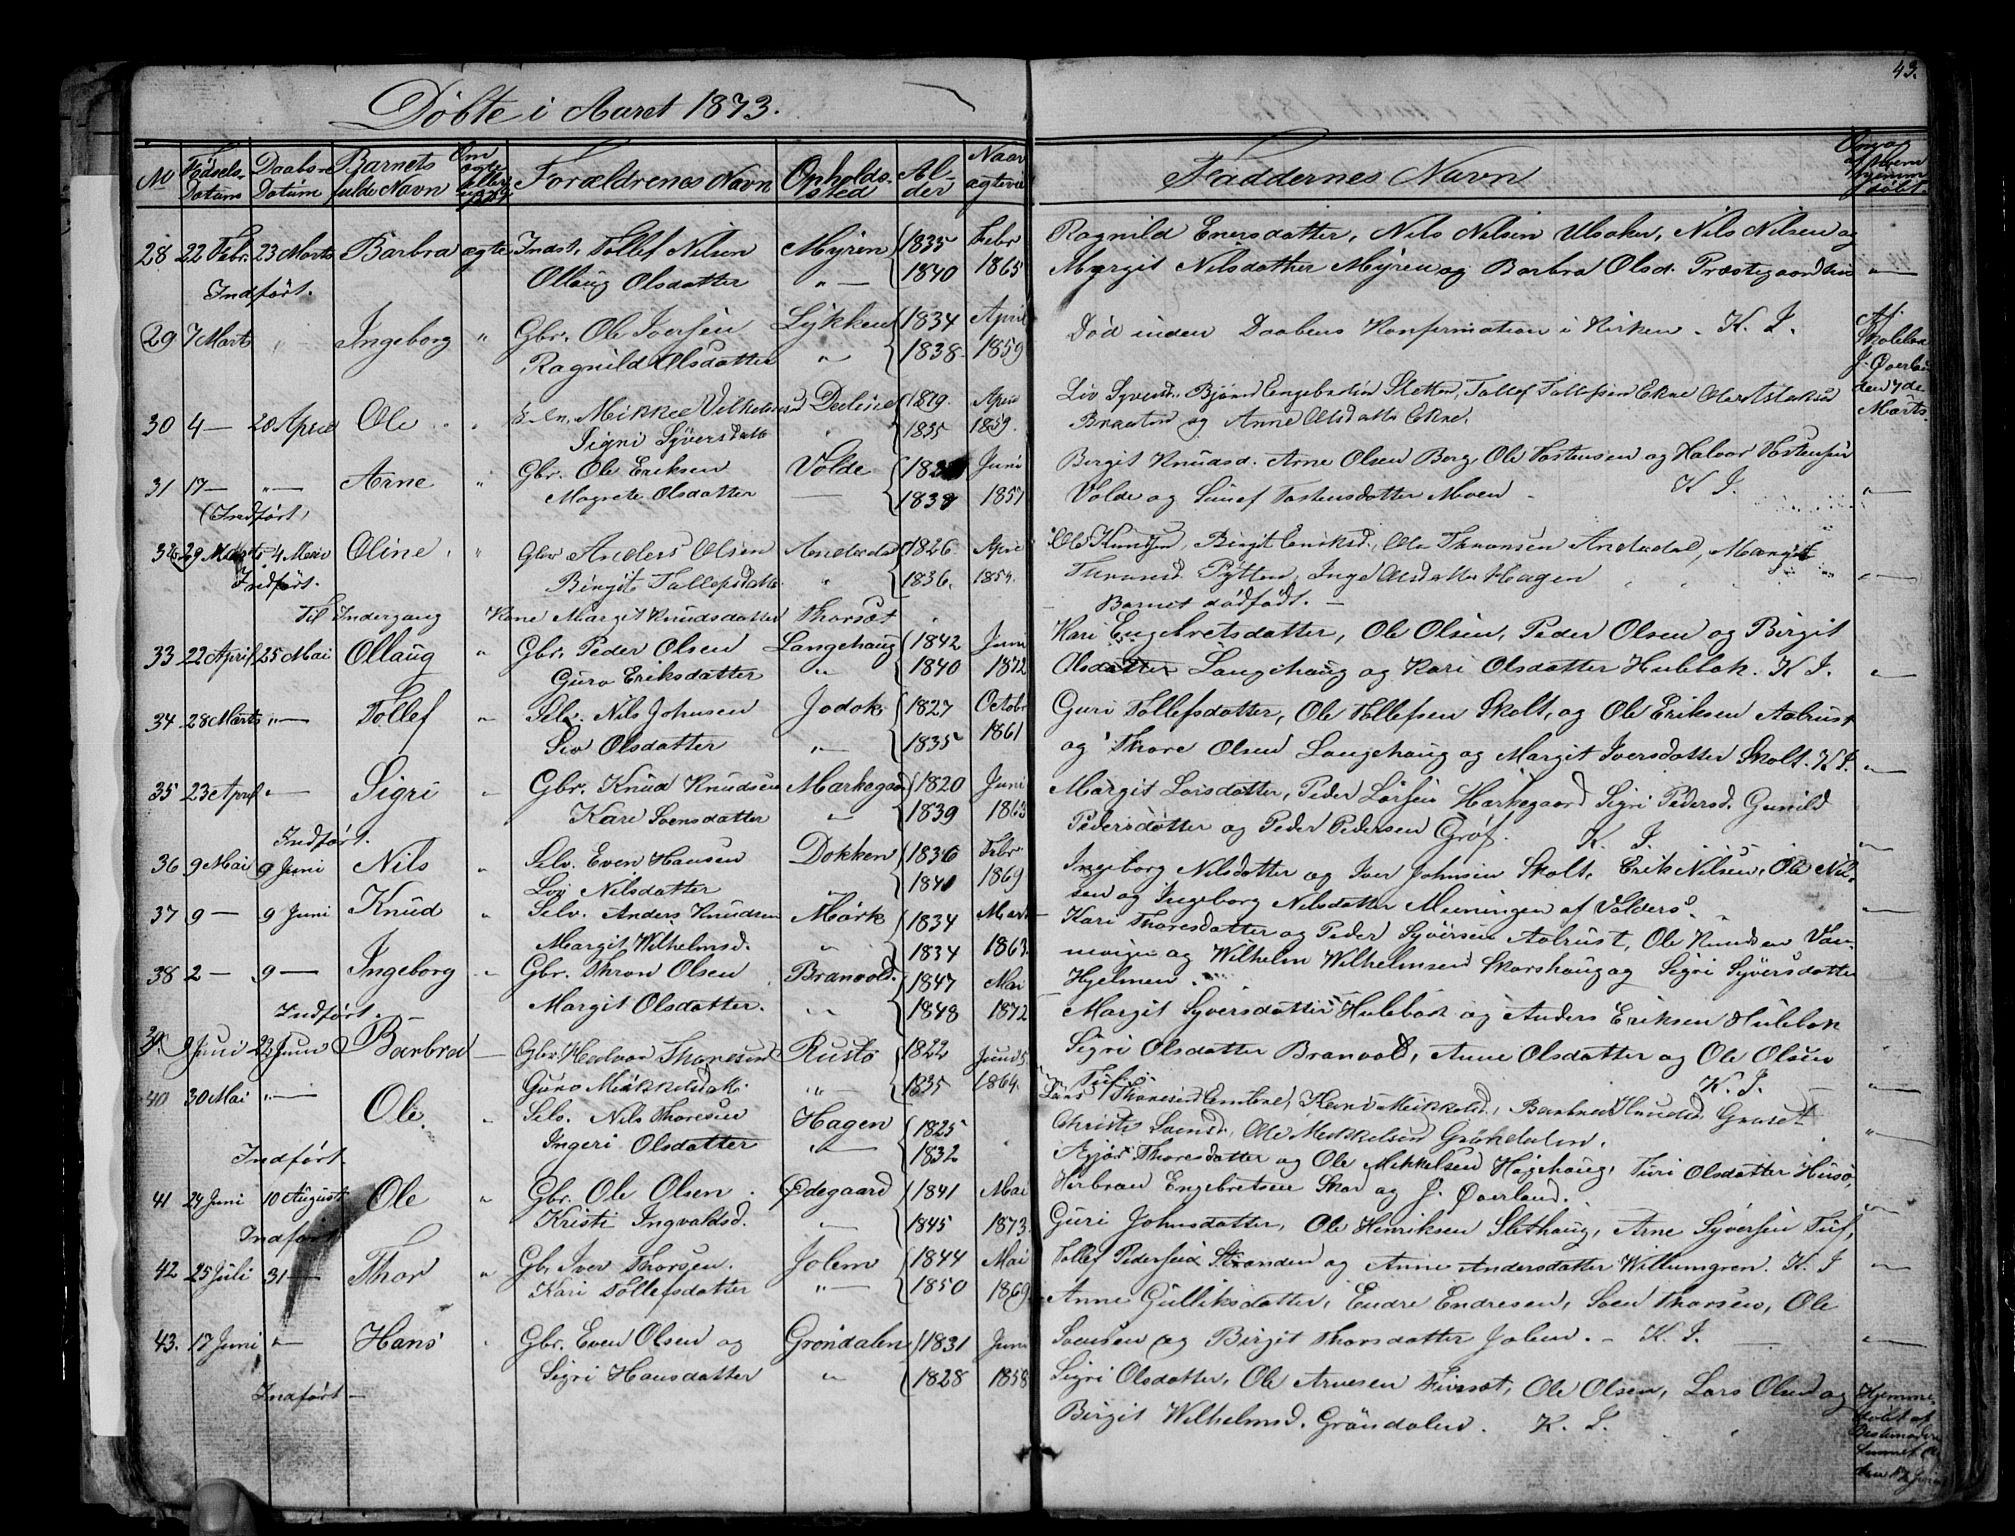 43.
Döbte i Aaret 1873.
No Födsels-Datum Daabs-Datum Barnets fulde Navn Om ægte eller uægte Forældrenes Navn Opholds-Sted Al-der Naar ægteviet
Faddernes Navn
28 22 Febr. 23 Marts Barbra ægte Indst. Tollef Nilsen Myren 1835 Febr
Ollaug Olsdatter " — 1840 1865
Indført.
Ragnild Enersdatter, Nils Nilsen Ulsaker, Nils Nilsen og
Margit Nilsdatter Myren og Barbra Olsd. Præstegaarden "—
29 7 Marts " — Ingeborg " Gbr. Ole Iversen Lykken 1834 April
Ragnild Olsdatter " 1838 1859
Död inden Daabens Konfirmation i Kirken. K. I.
Af Skoleho J. Överland den 7de Marts
30 4 — 20 April Ole " Mikkel Vilhelmsen 1829. April
Signi Syversdatt " 1835 1859.
Liv Syversd. Björn Engebretsen Sletten, Tollef Tollefsen Ekre
Braaten og Anne Olsdatter Ekre.
31 17 — "— Arne " Gbr. Ole Eriksen Volde Juni
Magrete Olsdatter — 1838 1857
(Indført)
Birgit Knudsd. Arne Olsen Berg, Ole Tostensen og Halvor Tostensen
Volde og Sunef Tostensdatter Moen K I. "—
32 29 Marts 4 Mai Oline " Gbr Anders Olsen 1826. April
Birgit Tollefsdatt. " 1836.
Indført.
Ole Knudsen, Birgit Eriksd., Ole Thronsen Andredal, Margit
Thronsd. Pytten, Inge Olsdatter Hagen "—
Barnet dødfødt. —
Til Indergang Kone Margit Knudsdatter Thorsæt
33 22 April 25 Mai Ollaug " Gbr. Peder Olsen Langehaug 1842 Juni
Guro Eriksdatter " 1840 1872
Kari Engebretsdatter, Ole Olsen, Peder Olsen og Birgit
Olsdatter Langehaug og Kari Olsdatter Hulbak. K I. "—
34 28 Marts "— Tollef " Selv. Nils Johnsen Jodok 1827 Octobr
Liv Olsdatter "— 1835 1861
Guri Tollefsdatter, Ole Tollefsen Skolt, og Ole Eriksen Aalrust
og Thore Olsen Langehaug og Margit Iversdatter Skolt. K I. "—
35 23 April "— Sigri " Gbr. Knud Knudsen Markegaard 1820 Juni
Kari Svensdatter "— 1839 1863
Indført.
Margit Larsdatter, Peder Larsen Markegaard Sigri Pedersd. Gunild
Pedersdatter og Peder Pedersen Gröf. K. I. "—
36 9 Mai 9 Juni Nils " Selv. Even Hansen Dokken 1836 Febr
Liv Nilsdatter " 1840 1869
Ingeborg Nilsdatter og Iver Johnsen Skolt, Erik Nilsen, Ole Nil-
sen og Ingeborg Nilsdatter Meiningen af Valders. "—
37 9 — 9 Juni Knud " Selv. Anders Knudsen Mørk 1834 Mart
Margit Wilhelmsd. " 1834 1863
Kari Thoresdatter og Peder Syversen Aalrust, Ole Knudsen Van-
nevigen og Wilhelm Wilhelmsen Skarshaug og Sigri Syversdatter
Hjelmen.
38 2 — 9 — Ingeborg " Gbr. Thron Olsen Branvold. 1847 Mai
Margit Olsdatter. " 1848 1872
Indført. —
Margit Syversdatter Hulebak og Anders Eriksen Hulebak
Sigri Olsdatter Branvold, Anne Olsdatter og Ole Olsen
Tuf. K. I. "—
39. 9 Juni 22 Juni Barbra — Gbr. Halvor Thoresen Rusto 1822 Juni
Guro Mikkelsdatt. "— 1835 1864.
Lars Thoresen Emtene, Hans Mikkelsd., Barbra Knudsd. Graset
Christi Svensd., Ole Mikkelsen Gröndalen. "—
40 30 Mai "— Ole. " Selv. Nils Thoresen Hagen 1825
Ingeri Olsdatter "— 1832
Indført.
Asjör Thoresdatter og Ole Mikkelsen Høgehaug, Turi Olsdatter Husø,
Herbran Engebretsen Skar og J. Överland. "—
41 24 Juni 10 August Ole " Gbr. Ole Olsen. Ødegaard 1841 Mai
Kristi Ingvaldsd. "— 1845 1873
Indført
Guri Johnsdatter, Ole Henriksen Slethaug, Arne Syversen Tuf,
Tollef Pedersen Stranden og Anne Andersdatter Willumgren. K. I "—
42 25 Juli 31 — Thor " Gbr Iver Thorsen. Jolem 1844 Mai
Kari Tollefsdatter "— 1850 1869
Anne Gulliksdatter, Endre Endresen, Sven Thorsen, Ole
Svensen og Birgit Thorsdatter Jolem. — K. I. "—
43. 17 Juni "— Hans " Gbr. Even Olsen og Gröndalen 1831 Juni
Sigri Hansdatter " 1828 1858
Indført —
Sigri Olsdatter, Ole Arnesen Tversæt, Ole Olsen, Lars Olsen og
Birgit Wilhelmsd. Gröndalen. K. I.
Hjemme
döbt af